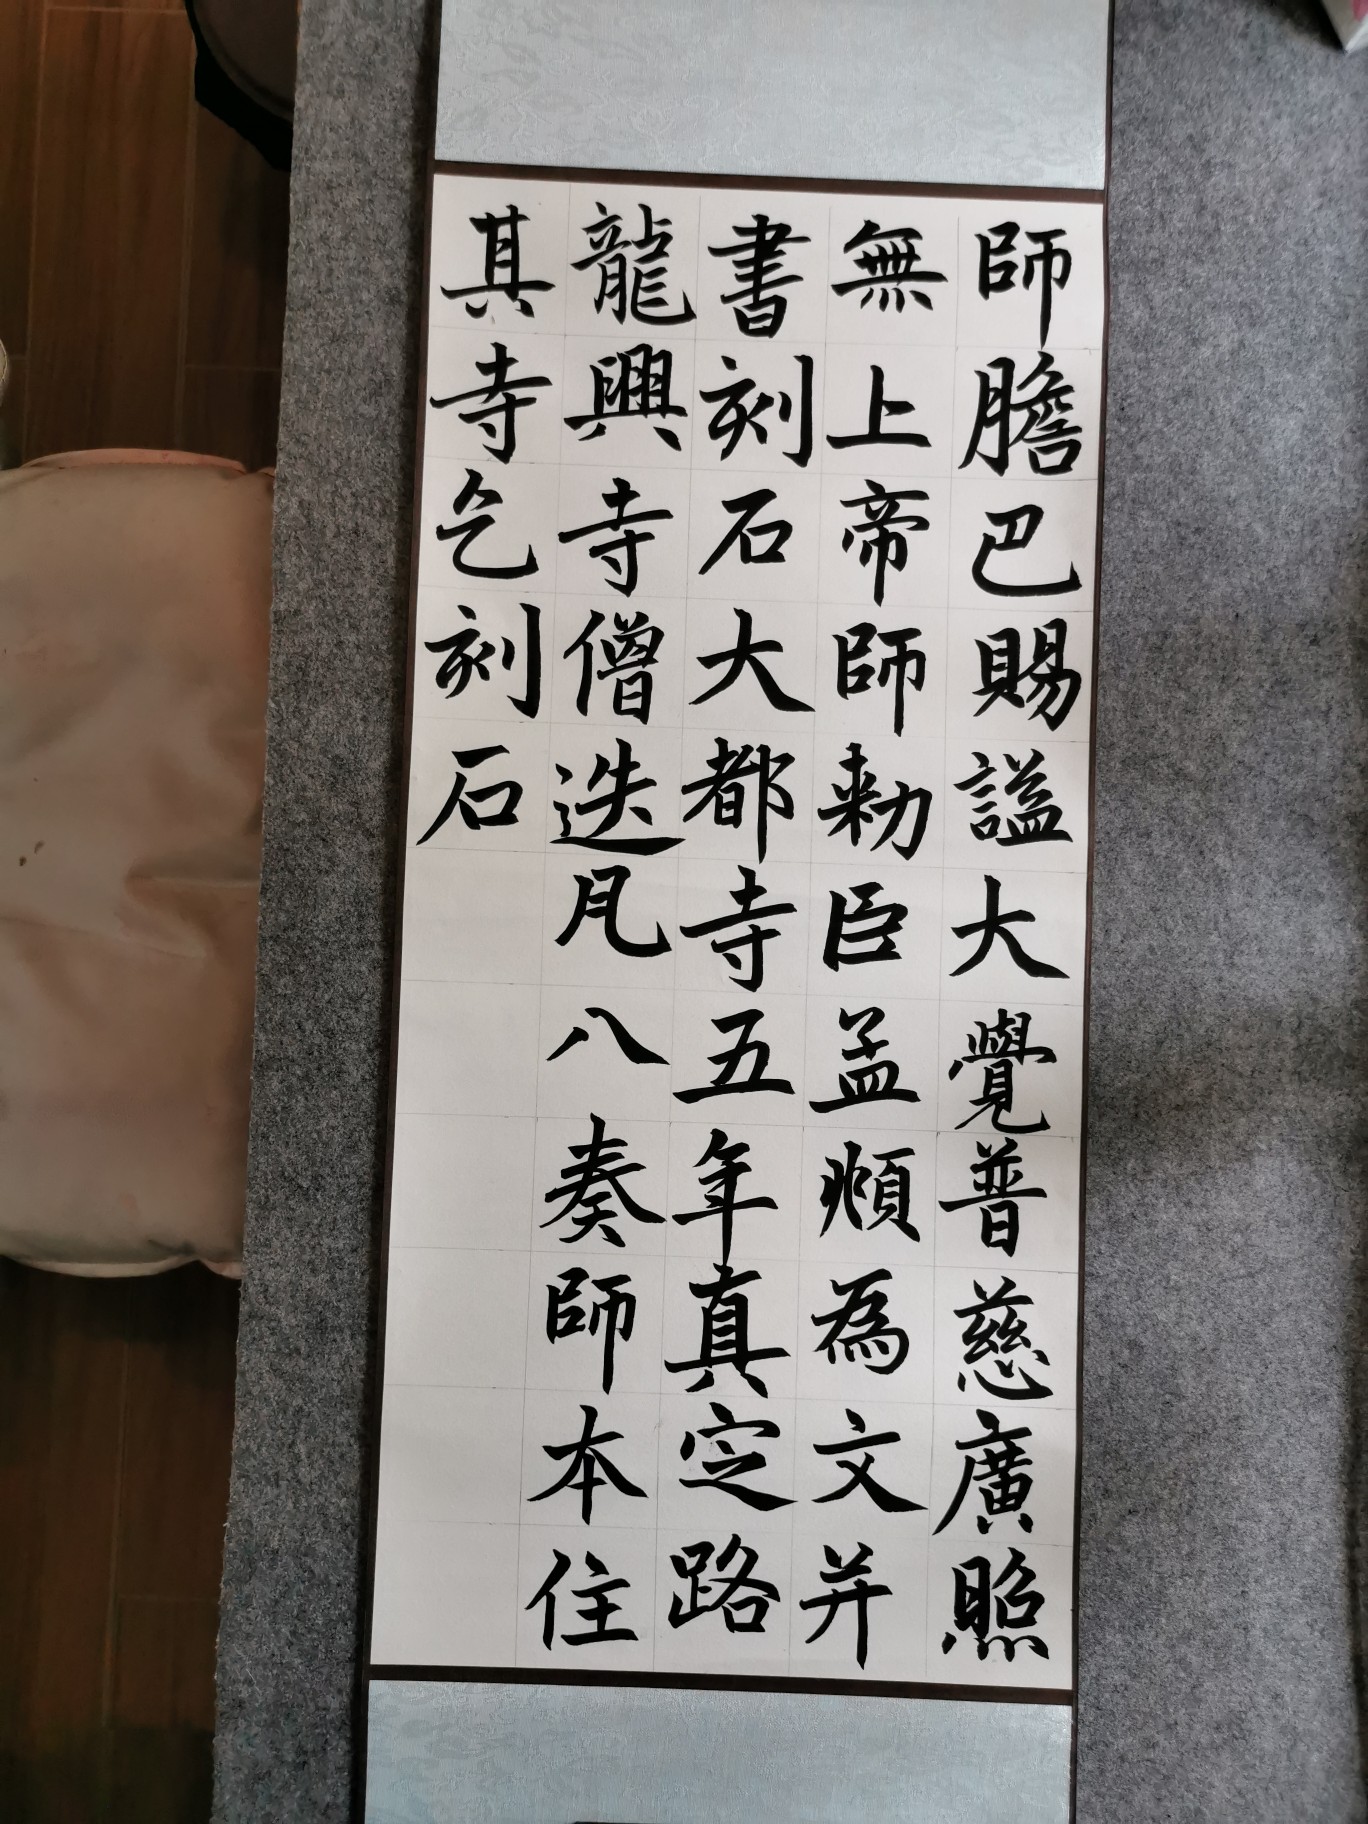 師膽巴賜謚大覺普慈廣照
無上帝師勅臣孟頫為文并
書刻石大都寺五年真定路
龍興寺僧迭凡八奏師本住
其寺乞刻石